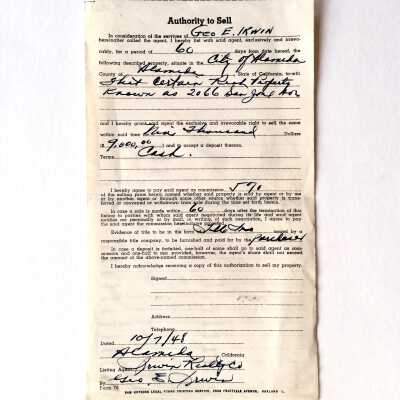 Authority to Sell
In consideration of the services of Geo E. Irwin
hereinafter called the agent, I hereby list with said agent, exclusively and irrevo-
cably, for a period of 60 days from date hereof, the
following described property, situate in the City of Alameda
County of Alameda State of California, to-wit:
That Certain Real Property
Known as 2066 San Jose Ave
and I hereby grant said agent the exclusive and irrevocable right to sell the same
within said time Nine Thousand Dollars
($ 9,000.00 ) and to accept a deposit thereon.
Terms Cash.
I hereby agree to pay said agent as commission 5%
of the selling price herein named whether said property is sold by agent or by me
or by another agent or through some other source whether said property is trans-
ferred or conveyed or withdrawn from sale during the time set forth herein.
In case a sale is made within 60 days after the termination of this
listing to parties with whom said agent negotiated during its life and said agent
notifies me personally or by mail, in writing, of such negotiation, I agree to pay
the said agent the commission hereinabove
Evidence of title to be in the form Title Ins issued by a
responsible title company, to be furnished and paid for by the purchaser
In case a deposit is forfeited, one-half of same shall go to said agent as com-
mission and one-half to me; provided, however, the agent's share shall not exceed
the amount of the above-named commission.
I hereby acknowledge receiving a copy of this authorization to sell my property.
Signed
Address
Telephone
Dated 10/7/48
Alameda California
Listing Agent Irwin Realty Co
By Geo E. Irwin